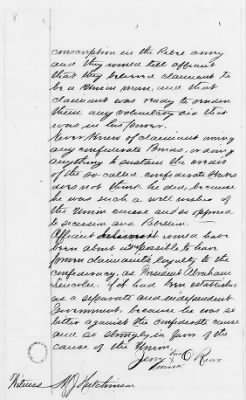 conscription in the Rebel army
and they would tell affiant
that they believed claimant to
be a Union man, and that
claimant was ready to render
them any voluntary aid that
was in his power.
Never knew of claimant owning
any confederate Bonds, or doing
anything to sustain the credit
of the so-called confederate States
does not think he did, because
he was such a well wisher of
the Union cause and so opposed
to secession and
Affiant would have
been about as possible to have
claimants loyalty to the
confederacy, as President Abraham
Lincoln, if it had been established
as a separate and independent
Government, because he was so
bitter against the confederate cause
and so strongly in favor of the
cause of the Union.
Jerry his O Rear
mark
Witness M J Hutchinson